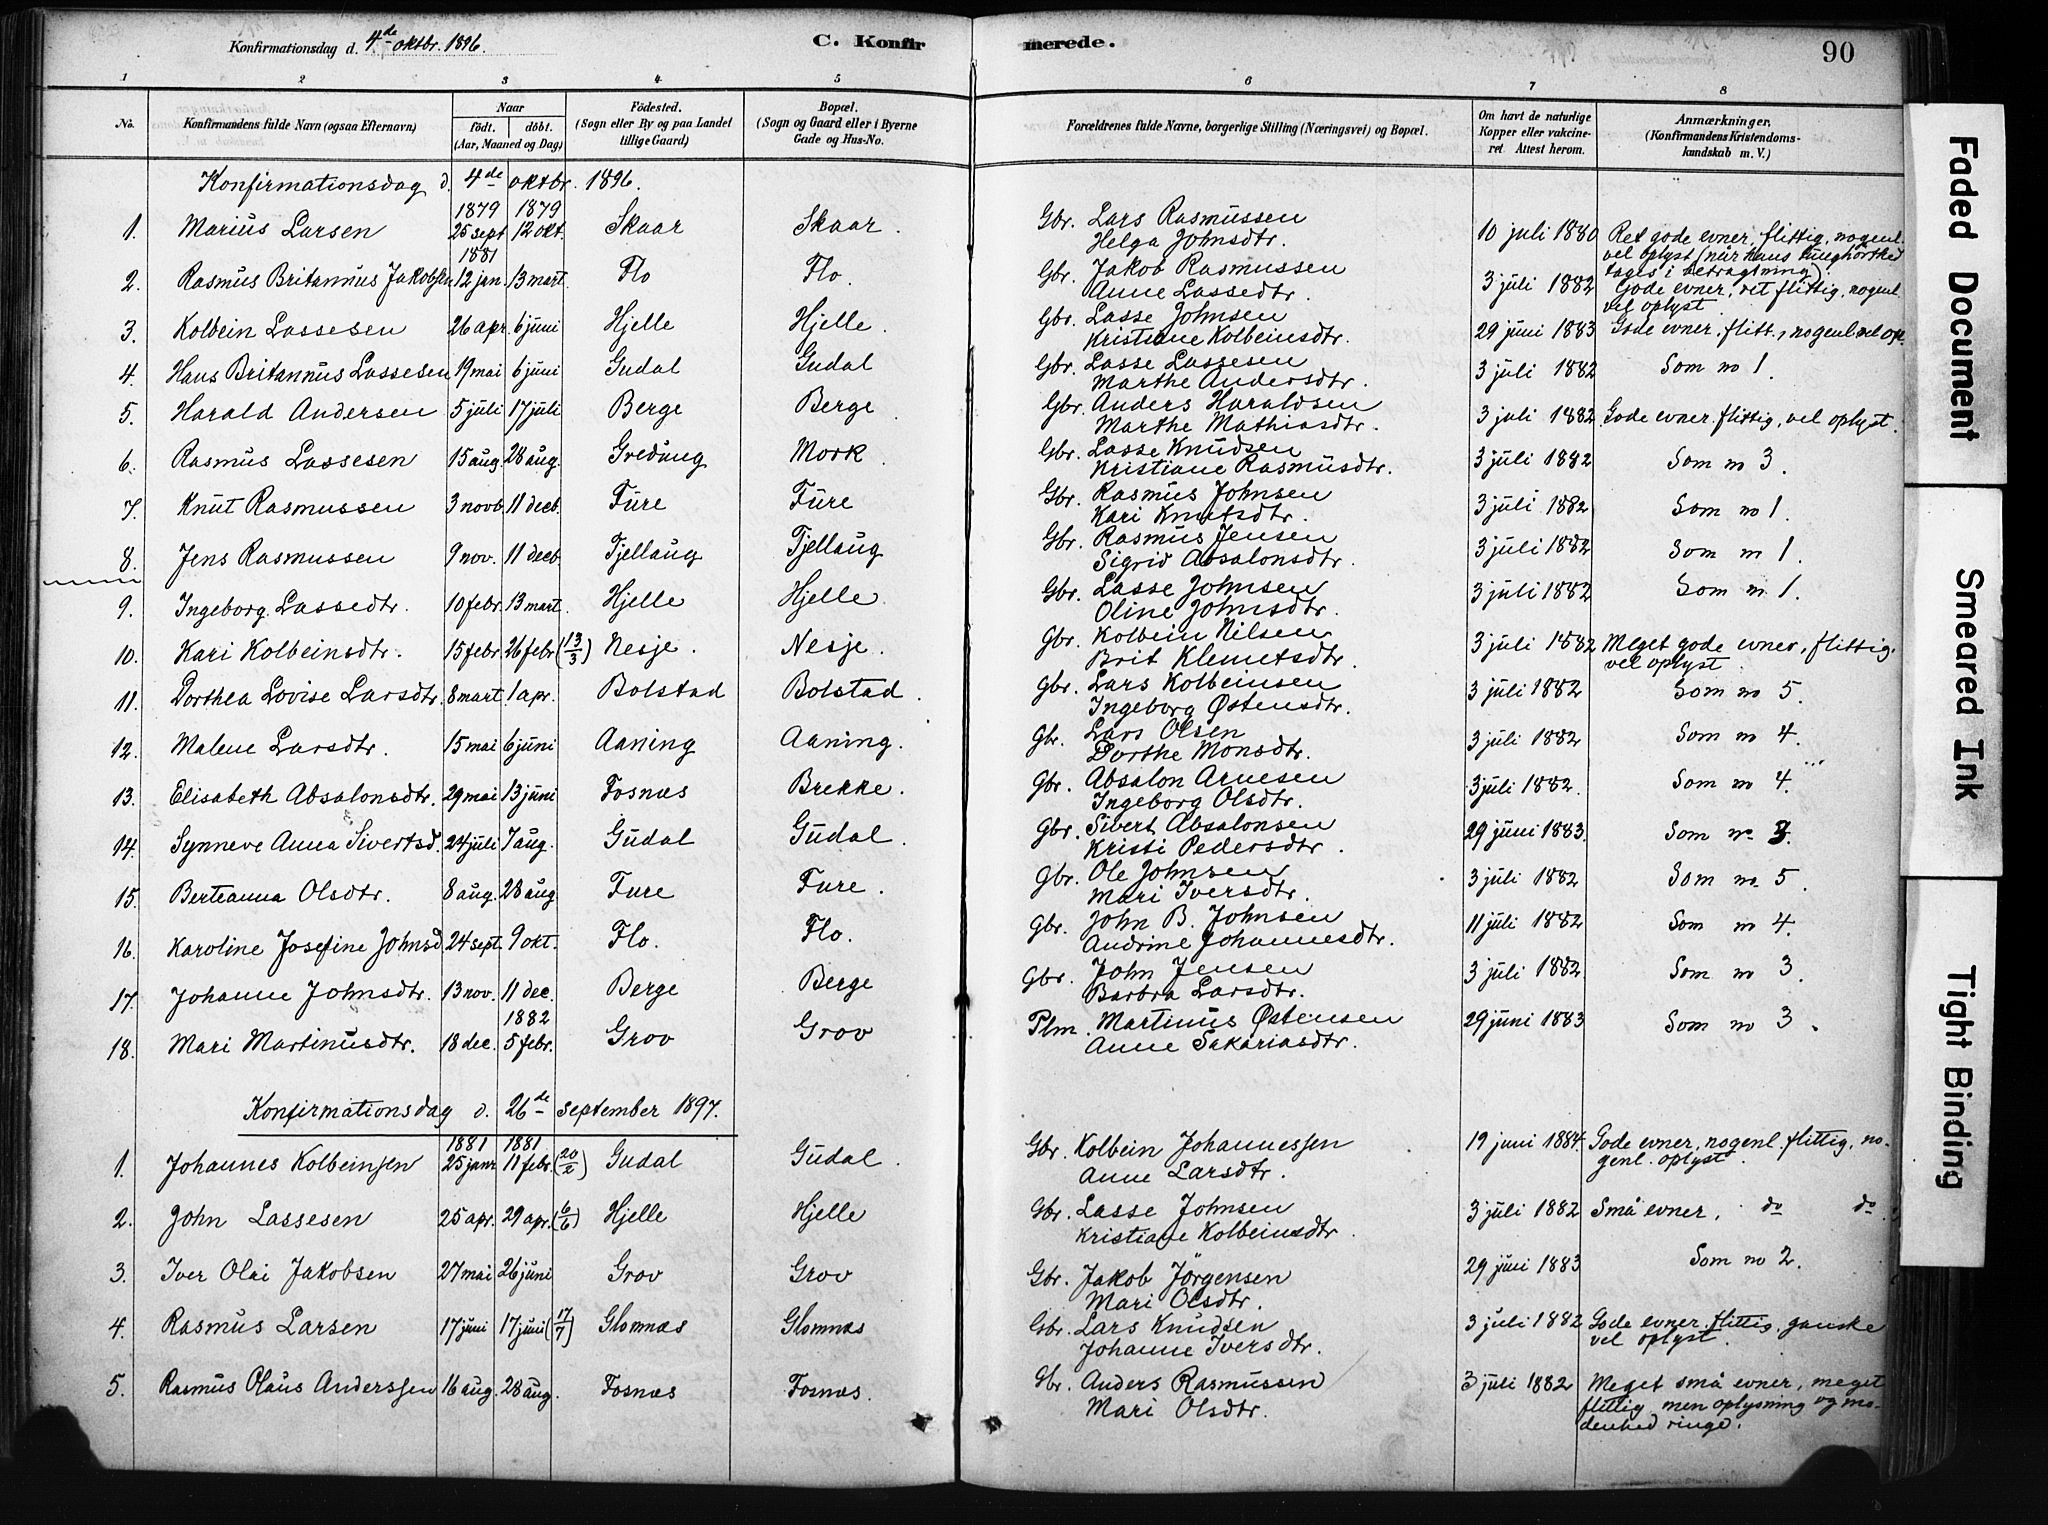 Konfirmationsdag d. 4de oktbr. 1896.
C. Konfirmerede.
90
1 2 3 4 5 6 7 8
No.
Konfirmandens fulde Navn (ogsaa Efternavn)
Naar
födt. döbt.
(Aar, Maaned og Dag)
Födested.
(Sogn eller By og paa Landet
tillige Gaard)
Bopæl.
(Sogn og Gaard eller i Byerne
Gade og Hus-No.
Forældrenes fulde Navne, borgerlige Stilling (Næringsvei) og Bopæl.
Om havt de naturlige
Kopper eller vakcine-
ret Attest herom.
Anmærkninger,
(Konfirmandens Kristendoms-
kundskab m. V.)
Konfirmationsdag d. 4de oktbr. 1896.
1879 1879
1. Marius Larsen 25 sept 12 okt. Skaar Skaar. Gbr. Lars Rasmussen Helga Johnsdtr. 10 juli 1880 Ret gode evner, flittig, nogenl. vel oplyst (når hans tunghørthed tages i betragtning).
1881
2. Rasmus Britannus Jakobsen 12 jan. 13 mart. Flo Flo. Gbr. Jakob Rasmussen Anne Lassedtr. 3 juli 1882 Gode evner, ret flittig, nogenl. vel oplyst.
3. Kolbein Lassesen 26 apr. 6 juni Hjelle Hjelle. Gbr. Lasse Johnsen Kristiane Kolbeinsdtr. 29 juni 1883 Gode evner, flitt., nogenl. vel opl.
4. Hans Britannus Lassesen 19 mai 6 juni Gudal Gudal Gbr. Lasse Lassesen Marthe Andersdtr. 3 juli 1882 Som no 1.
5. Harald Andersen 5 juli 17 juli Berge Berge Gbr. Anders Haraldsen Marthe Mathiasdtr. 3 juli 1882 Gode evner. flittig, vel oplyst.
6. Rasmus Lassesen 15 aug. 28 aug. Gredung Mork. Gbr. Lasse Knudsen Kristiane Rasmusdtr. 3 juli 1882 Som no 3.
7. Knut Rasmussen 3 novb. 11 decb. Fure Fure Gbr. Rasmus Johnsen Kari Knutsdtr. 3 juli 1882 Som no 1.
8. Jens Rasmussen 9 nov. 11 decb. Tjellaug Tjellaug Gbr. Rasmus Jensen Sigrid Absalonsdtr. 3 juli 1882 Som no 1.
9. Ingeborg Lassedtr. 10 febr. 13 mart. Hjelle Hjelle. Gbr. Lasse Johnsen Oline Johnsdtr. 3 juli 1882 Som no 1.
10. Kari Kolbeinsdtr. 15 febr. 26 febr (13/3) Nesje. Nesje. Gbr. Kolbein Nilsen Brit Klemetsdtr. 3 juli 1882 Meget gode evner, flittig. vel oplyst.
11. Dorthea Lovise Larsdtr. 8 mart. 1 apr. Bolstad Bolstad. Gbr. Lars Kolbeinsen Ingeborg Østensdtr. 3 juli 1882 Som no 5.
12. Malene Larsdtr. 15 mai 6 juni Aaning Aaning. Gbr. Lars Olsen Dorthe Monsdtr. 3 juli 1882 Som no 4.
13. Elisabeth Absalonsdtr. 29 mai 13 juni Fosnæs Brekke. Gbr. Absalon Arnesen Ingeborg Olsdtr. 3 juli 1882. Som no 4.
14. Synneve Anna Sivertsd. 24 juli 7 aug. Gudal Gudal. Gbr. Sivert Absalonsen Kristi Pedersdtr. 29 juni 1883. Som no 3.
15. Berteanna Olsdtr. 8 aug. 28 aug Fure Fure. Gbr. Ole Johnsen Mari Iversdtr. 3 juli 1882 Som no 5.
16. Karoline Josefine Johnsd. 24 sept. 9 okt. Flo. Flo. Gbr. John B. Johnsen Andrine Johannesdtr. 11 juli 1882 Som no 4.
17. Johanne Johnsdtr. 13 nov. 11 dec. Berge Berge Gbr. John Jensen Barbra Larsdtr. 3 juli 1882. Som no 3.
1882
18. Mari Martinusdtr. 18 dec. 5 febr. Grov Grov Plm. Martinus Østensen Anne Sakariasdtr. 29 juni 1883 Som no 3.
Konfirmationsdag d. 26de september 1897.
1881 1881
1. Johannes Kolbeinsen 25 janr. 11 febr. (20/2) Gudal Gudal. Gbr. Kolbein Johannessen Anne Larsdtr. 19 juni 1884. Gode evner, nogenl. flittig, nogenl. oplyst.
2. John Lassesen 25 apr. 29 apr. (6/6) Hjelle Hjelle Gbr. Lasse Johnsen Kristiane Kolbeinsdtr. 3 juli 1882 Små evner, do do.
3. Iver Olai Jakobsen 27 mai 26 juni Grov Grov Gbr. Jakob Jörgensen Mari Olsdtr. 29 juni 1883 Som no 2.
4. Rasmus Larsen 17 juni 17 juni (17/7) Glomnæs Glomnæs Gbr. Lars Knudsen Johanne Iversdtr. 3 juli 1882 Gode evner. flittig, ganske vel oplyst.
5. Rasmus Olaus Anderssen 16 aug. 28 aug. Fosnæs Fosnæs. Gbr. Anders Rasmussen Mari Olsdtr. 3 juli 1882 Meget små evner, meget flittig men oplysning og modenhed ringe.
Faded Document
Smeared Ink
Tight Binding